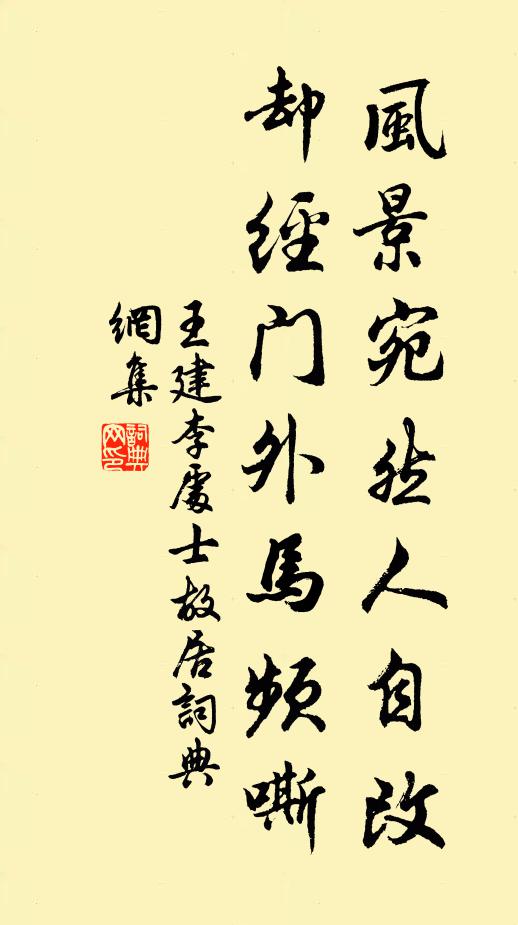 風景宛然人自改
却經門外馬頻嘶
王建李處士故居詞典
網集
詞典
网印